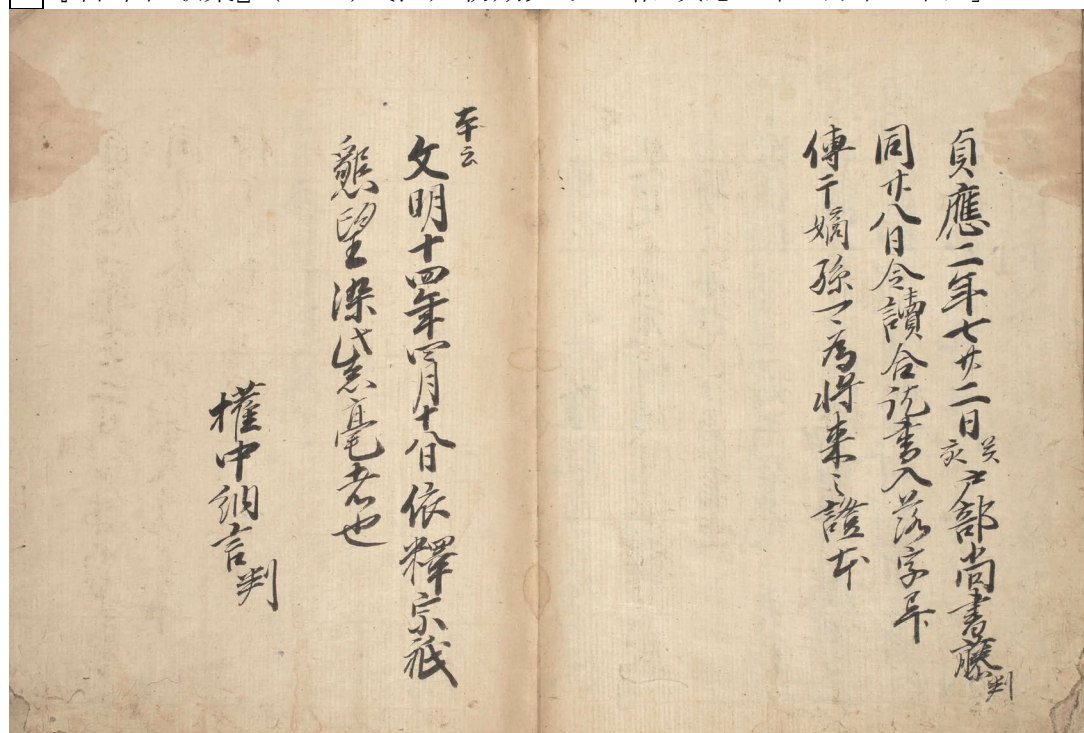 貞應二年七月廿二日 癸亥 戸部尚書藤 判
同廿八日令讀合訖書入落字畢
傳于嫡孫可為将来之證本
本云
文明十四年四月十八日依釋宗祇
懇望染紫毫者也
權中納言 判